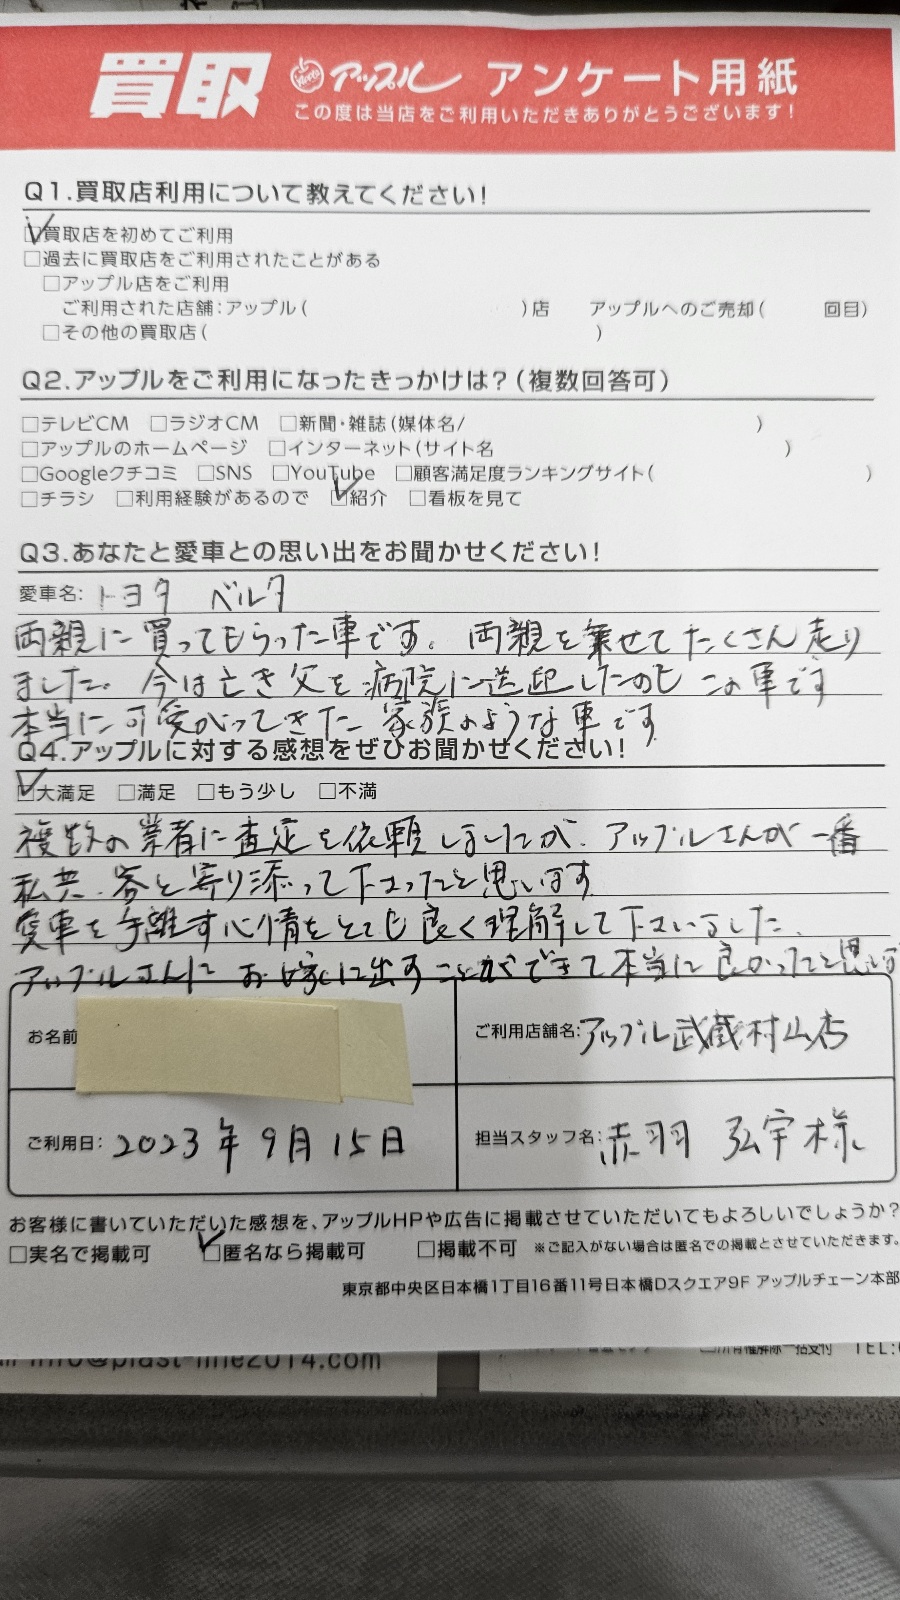 買取 Apple アップル アンケート用紙
この度は当店をご利用いただきありがとうございます!
Q1.買取店利用について教えてください!
☑買取店を初めてご利用
□過去に買取店をご利用されたことがある
□アップル店をご利用
ご利用された店舗:アップル( )店 アップルへのご売却( 回目)
□その他の買取店( )
Q2.アップルをご利用になったきっかけは?(複数回答可)
□テレビCM □ラジオCM □新聞・雑誌(媒体名/ )
□アップルのホームページ □インターネット(サイト名 )
□Googleクチコミ □SNS □YouTube □顧客満足度ランキングサイト( )
□チラシ □利用経験があるので ☑紹介 □看板を見て
Q3.あなたと愛車との思い出をお聞かせください!
愛車名: トヨタ ベルタ
両親に買ってもらった車です。両親を乗せてたくさん走り
ました。今は亡き父を病院に送迎したのもこの車です
本当に可愛がってきた家族のような車です
Q4.アップルに対する感想をぜひお聞かせください!
☑大満足 □満足 □もう少し □不満
複数の業者に査定を依頼しましたが、アップルさんが一番
私共、客と寄り添って下さったと思います
愛車を手離す心情をとても良く理解して下さいました、
アップルさんにお嫁に出すことができて本当に良かったと思います
お名前
ご利用店舗名:アップル武蔵村山店
ご利用日: 2023年9月15日
担当スタッフ名:赤羽 弘宇様
お客様に書いていただいた感想を、アップルHPや広告に掲載させていただいてもよろしいでしょうか?
□実名で掲載可 ☑匿名なら掲載可 □掲載不可 ※ご記入がない場合は匿名での掲載とさせていただきます。
東京都中央区日本橋1丁目16番11号日本橋Dスクエア9F アップルチェーン本部
info@plast-line2014.com
所有権解除一括受付 TEL: